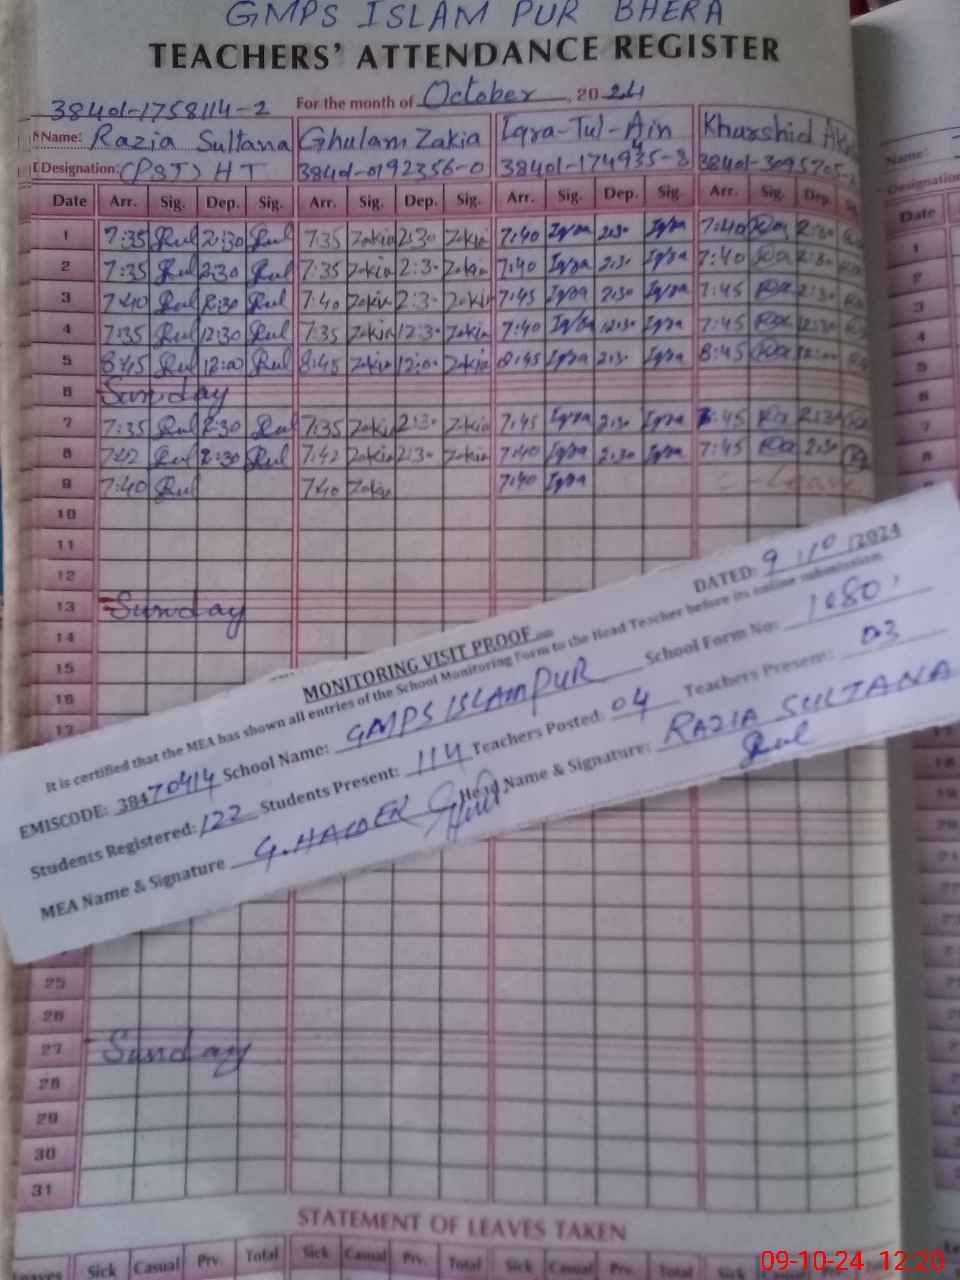 GMPS ISLAM PUR BHERA
TEACHERS' ATTENDANCE REGISTER
38401-1758114-2 For the month of October, 2024
Name: Razia Sultana Ghulam Zakia Iqra-Tul-Ain Khurshid
Designation: (PST) HT 38401-0192356-0 38401-174935-8
Date Arr. Sig. Dep. Sig. Arr. Sig. Dep. Sig. Arr. Sig. Dep. Sig. Arr. Sig. Dep.
1 7:35 2:30 7:35 Zakia 2:30 Zakia 7:40 Iqra 2:30 Iqra 7:40 2:30
2 7:35 2:30 7:35 Zakia 2:30 Zakia 7:40 Iqra 2:30 Iqra 7:40 2:30
3 7:40 2:30 7:40 Zakia 2:30 Zakia 7:45 Iqra 2:30 Iqra 7:45 2:30
4 7:35 12:30 7:35 Zakia 12:30 Zakia 7:40 Iqra 12:30 Iqra 7:45 12:30
5 8:45 12:00 8:45 Zakia 12:00 Zakia 8:45 Iqra 2:30 Iqra 8:45 12:00
6 Sunday
7 7:35 2:30 7:35 Zakia 2:30 Zakia 7:45 Iqra 2:30 Iqra 7:45 2:30
8 7:42 2:30 7:42 Zakia 2:30 Zakia 7:40 Iqra 2:30 Iqra 7:45 2:30
9 7:40 7:40 Zakia 7:40 Iqra C-Leave
10
11
12
13 Sunday
14
15
16
17
DATED: 9/10/2024
MONITORING VISIT PROOF
It is certified that the MEA has shown all entries of the School Monitoring Form to the Head Teacher before its online submission.
EMISCODE: 38470414 School Name: GMPS ISLAMPUR School Form No: 1080
Students Registered: 122 Students Present: 114 Teachers Posted: 04 Teachers Present: 03
MEA Name & Signature G. HAIDER Head Name & Signature: RAZIA SULTANA
25
26
27 Sunday
28
29
30
31
STATEMENT OF LEAVES TAKEN
Leaves Sick Casual Prv. Total Sick Casual Prv. Total Sick Casual Prv. Total Sick
Name:
Designation
Date
1
2
3
4
5
6
7
8
09-10-24 12:20